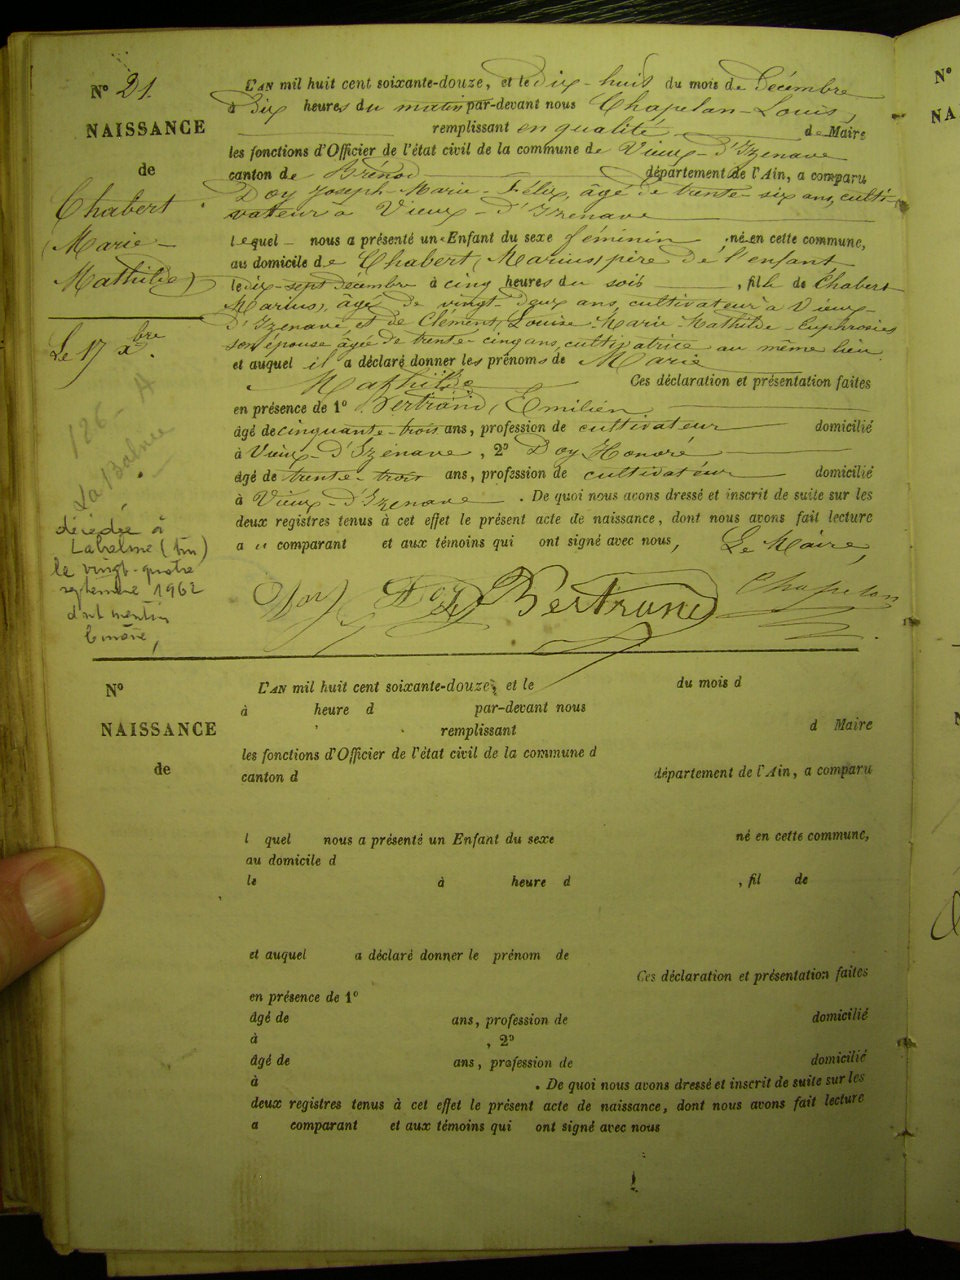 N° 21
NAISSANCE
de
Chabert
Marie
Mathilde
Le 17 Xbre.
126 - A
La Balme
décédée à
Labalme (Ain)
le vingt-quatre
septembre 1962
dont mention
L'AN mil huit cent soixante-douze, et le Dix-huit du mois de Décembre
à Dix heures du matin par-devant nous Chapelan Louis,
remplissant en qualité de Maire
les fonctions d'Officier de l'état civil de la commune de Vieux-d'Izenave
canton de Brénod département de l'Ain, a comparu
Doy Joseph Marie Félix, âgé de trente-six ans, culti-
vateur à Vieux-d'Izenave
lequel nous a présenté un Enfant du sexe féminin né en cette commune,
au domicile de Chabert, Marius, père de l'enfant
le dix-sept Décembre à cinq heures du soir, fille de Chabert
Marius, âgé de vingt-deux ans, cultivateur à Vieux-
d'Izenave, et de Clément, Louise Marie Mathilde Euphrosies
son épouse âgée de trente-cinq ans, cultivatrice au même lieu
et auquel il a déclaré donner les prénoms de Marie
Mathilde Ces déclaration et présentation faites
en présence de 1° Bertrand, Emilien
âgé de cinquante-trois ans, profession de cultivateur domicilié
à Vieux-d'Izenave, 2° Doy Honoré
âgé de trente-trois ans, profession de cultivateur domicilié
à Vieux-D'Izenave. De quoi nous avons dressé et inscrit de suite sur les
deux registres tenus à cet effet le présent acte de naissance, dont nous avons fait lecture
a comparant et aux témoins qui ont signé avec nous, Le Maire,
Doy Doy Bertrand Chapelan
N°
NAISSANCE
de
L'AN mil huit cent soixante-douze, et le du mois d
à heure d par-devant nous
remplissant d Maire
les fonctions d'Officier de l'état civil de la commune d
canton d département de l'Ain, a comparu
l quel nous a présenté un Enfant du sexe né en cette commune,
au domicile d
le à heure d , fil de
et auquel a déclaré donner le prénom de
Ces déclaration et présentation faites
en présence de 1°
âgé de ans, profession de domicilié
à , 2°
âgé de ans, profession de domicilié
à . De quoi nous avons dressé et inscrit de suite sur les
deux registres tenus à cet effet le présent acte de naissance, dont nous avons fait lecture
a comparant et aux témoins qui ont signé avec nous
N°
NA